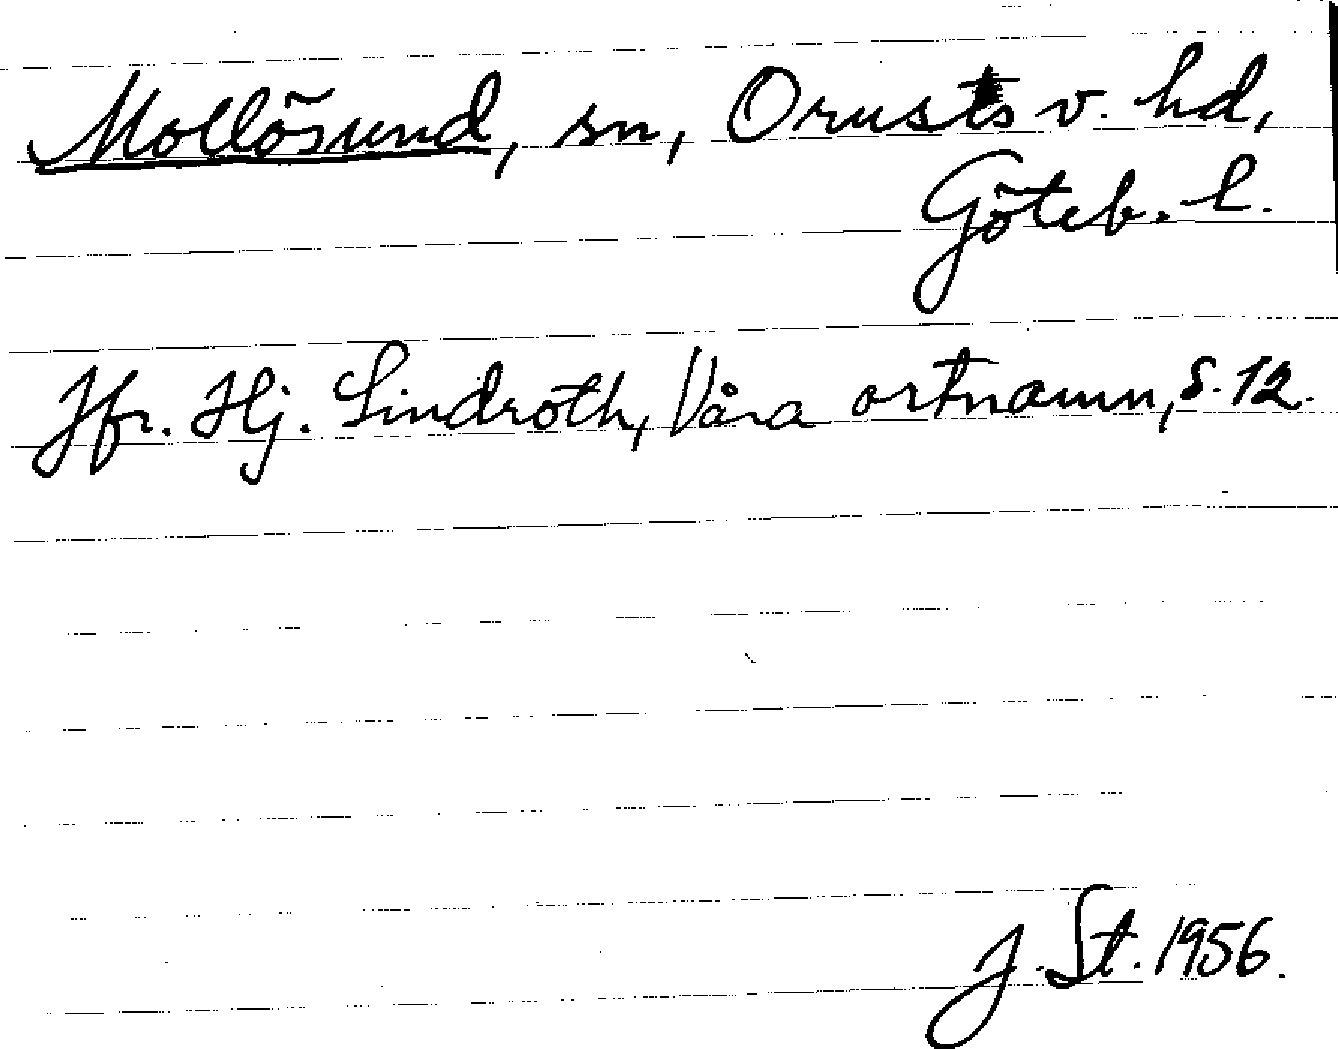 Mollösund, sn, Orusts v. hd,
Göteb. l.
Jfr. Hj. Lindroth, Våra ortnamn, s. 12.
J. St. 1956.